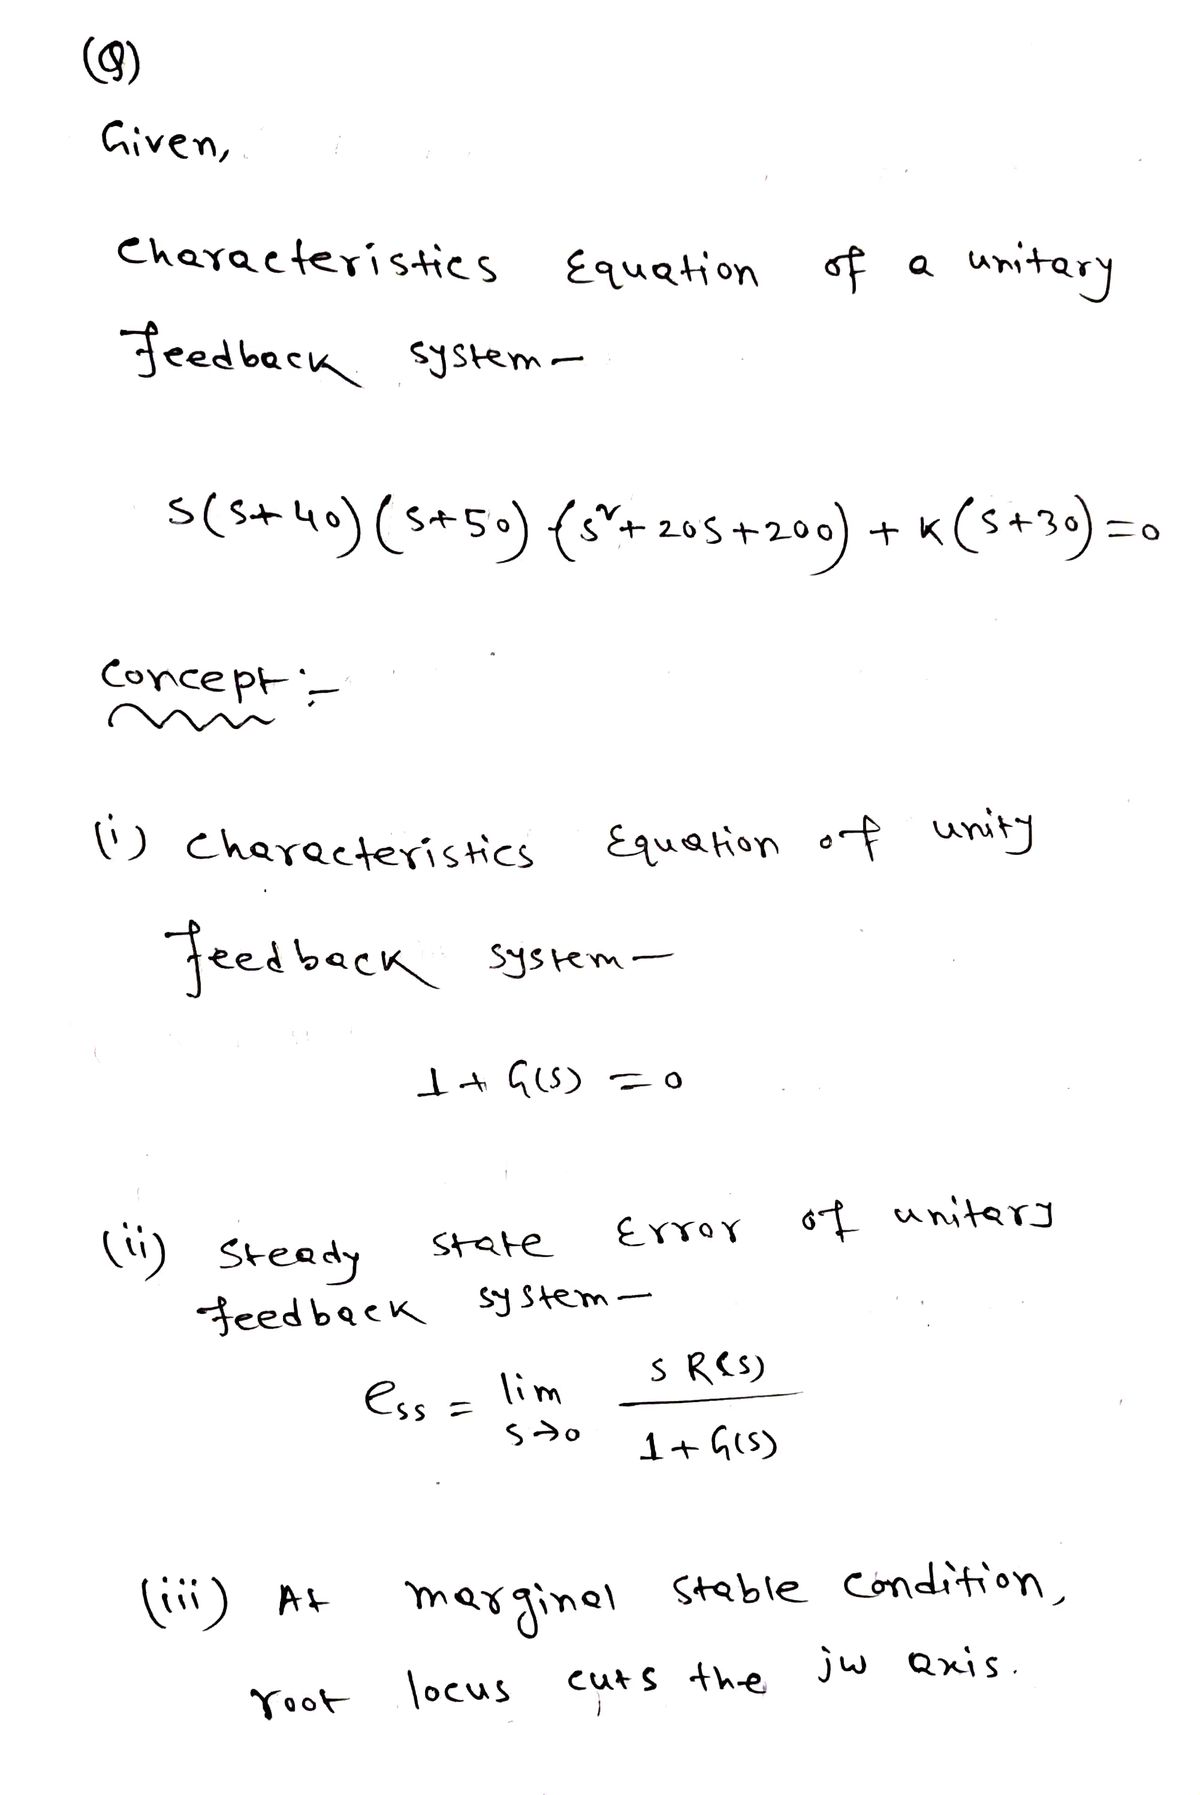 (Q)
Given,
Characteristics Equation of a unitary
feedback system-
S(S+40)(S+50)(S²+20S+200)+K(S+30)=0
Concept:-
(i) Characteristics Equation of unity
feedback system-
1+G(S)=0
(ii) Steady state Error of unitary
feedback system-
ess = lim S→0 S R(S) / 1+G(S)
(iii) At marginal stable condition,
root locus cuts the jw axis.